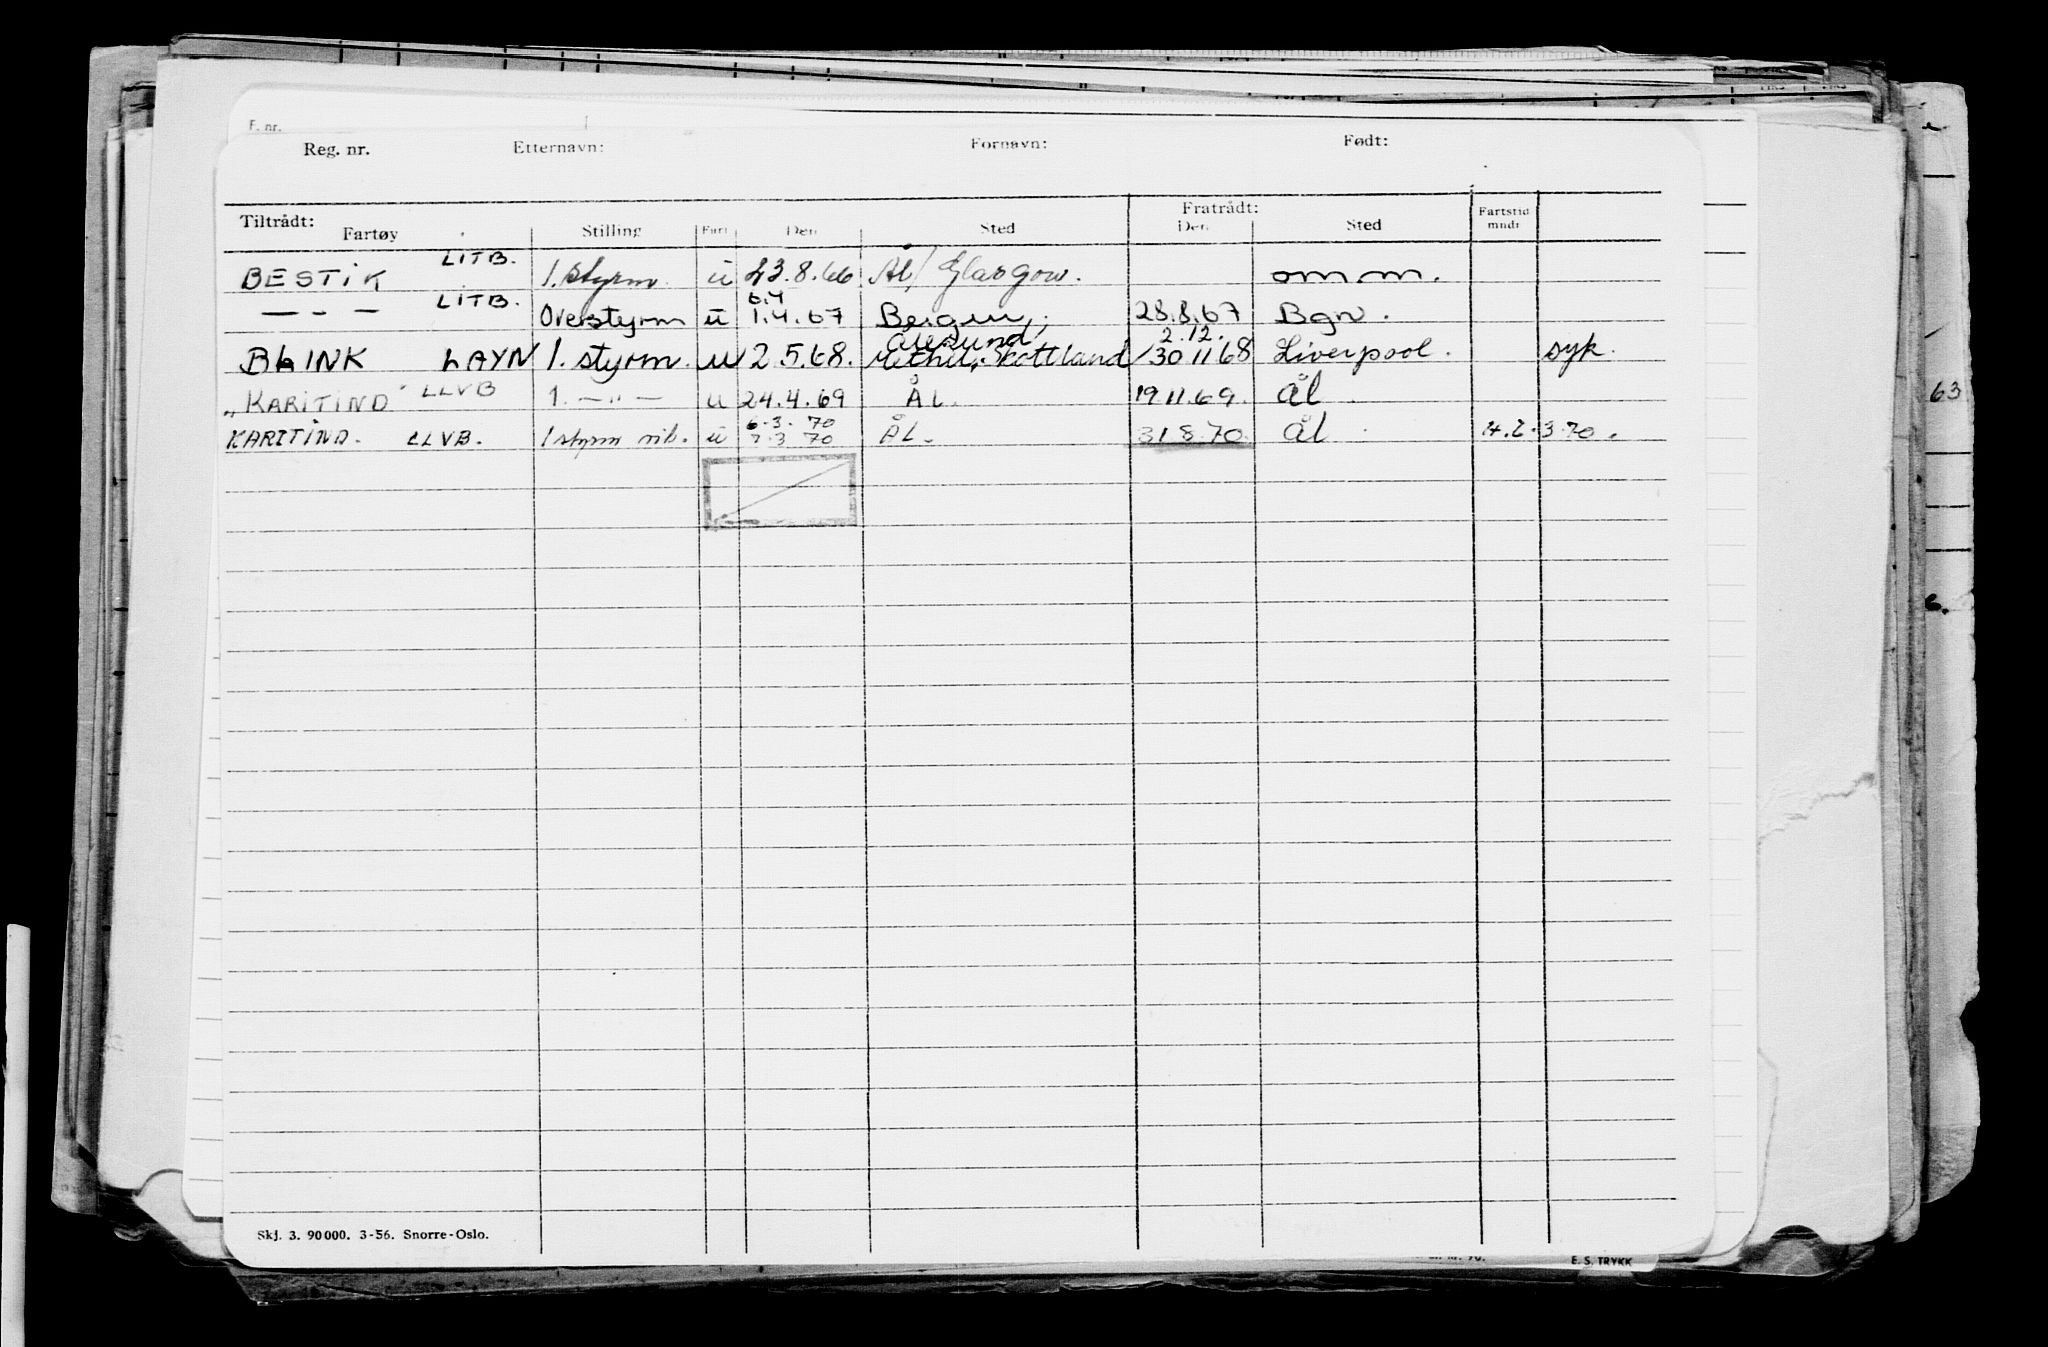 F. nr.
Reg. nr. Etternavn: Fornavn: Født:
Tiltrådt: Fratrådt:
Fartøy Stilling Fart Den Sted Den Sted Fartstid mndr
BESTIK LITB. 1. styrm. u 23.8.66 Ål/ Glasgow. omm.
— " — LITB. Overstyrm u 6.4 1.4.67 Bergen, 28.8.67 Bgn.
Ålesund 2.12.
BLINK LAYN 1. styrm. u 2.5.68. Methil, Skottland 30.11.68 Liverpool. syk.
"KARITIND" LLVB 1. — " — u 24.4.69 ÅL. 19.11.69. Ål
6.3.70
KARITIND. LLVB. 1 styrm u 7.3 70 ÅL. 31.8.70. Ål 3.70.
Skj. 3. 90000. 3-56. Snorre-Oslo.
E. S. TRYKK
63
6.